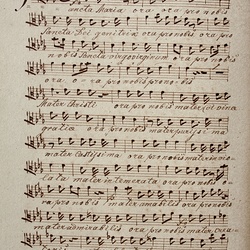 ancta Maria ora ora pro nobis
Sancta Dei genitrix ora pro nobis ora pro
nobis Sancta virgo virginum ora pro nobis
ora o-ra pro nobis pro nobis
Mater Christi ora pro nobis mater
gratiæ ora pro nobis mater purissi ma
mater castissi ma ora pro nobis mater in vio
la ta mater in temerata ora pro nobis o-
ra pro nobis mater amabilis ora pro nobis
mater admirabilis ora pro nobis mater crea-